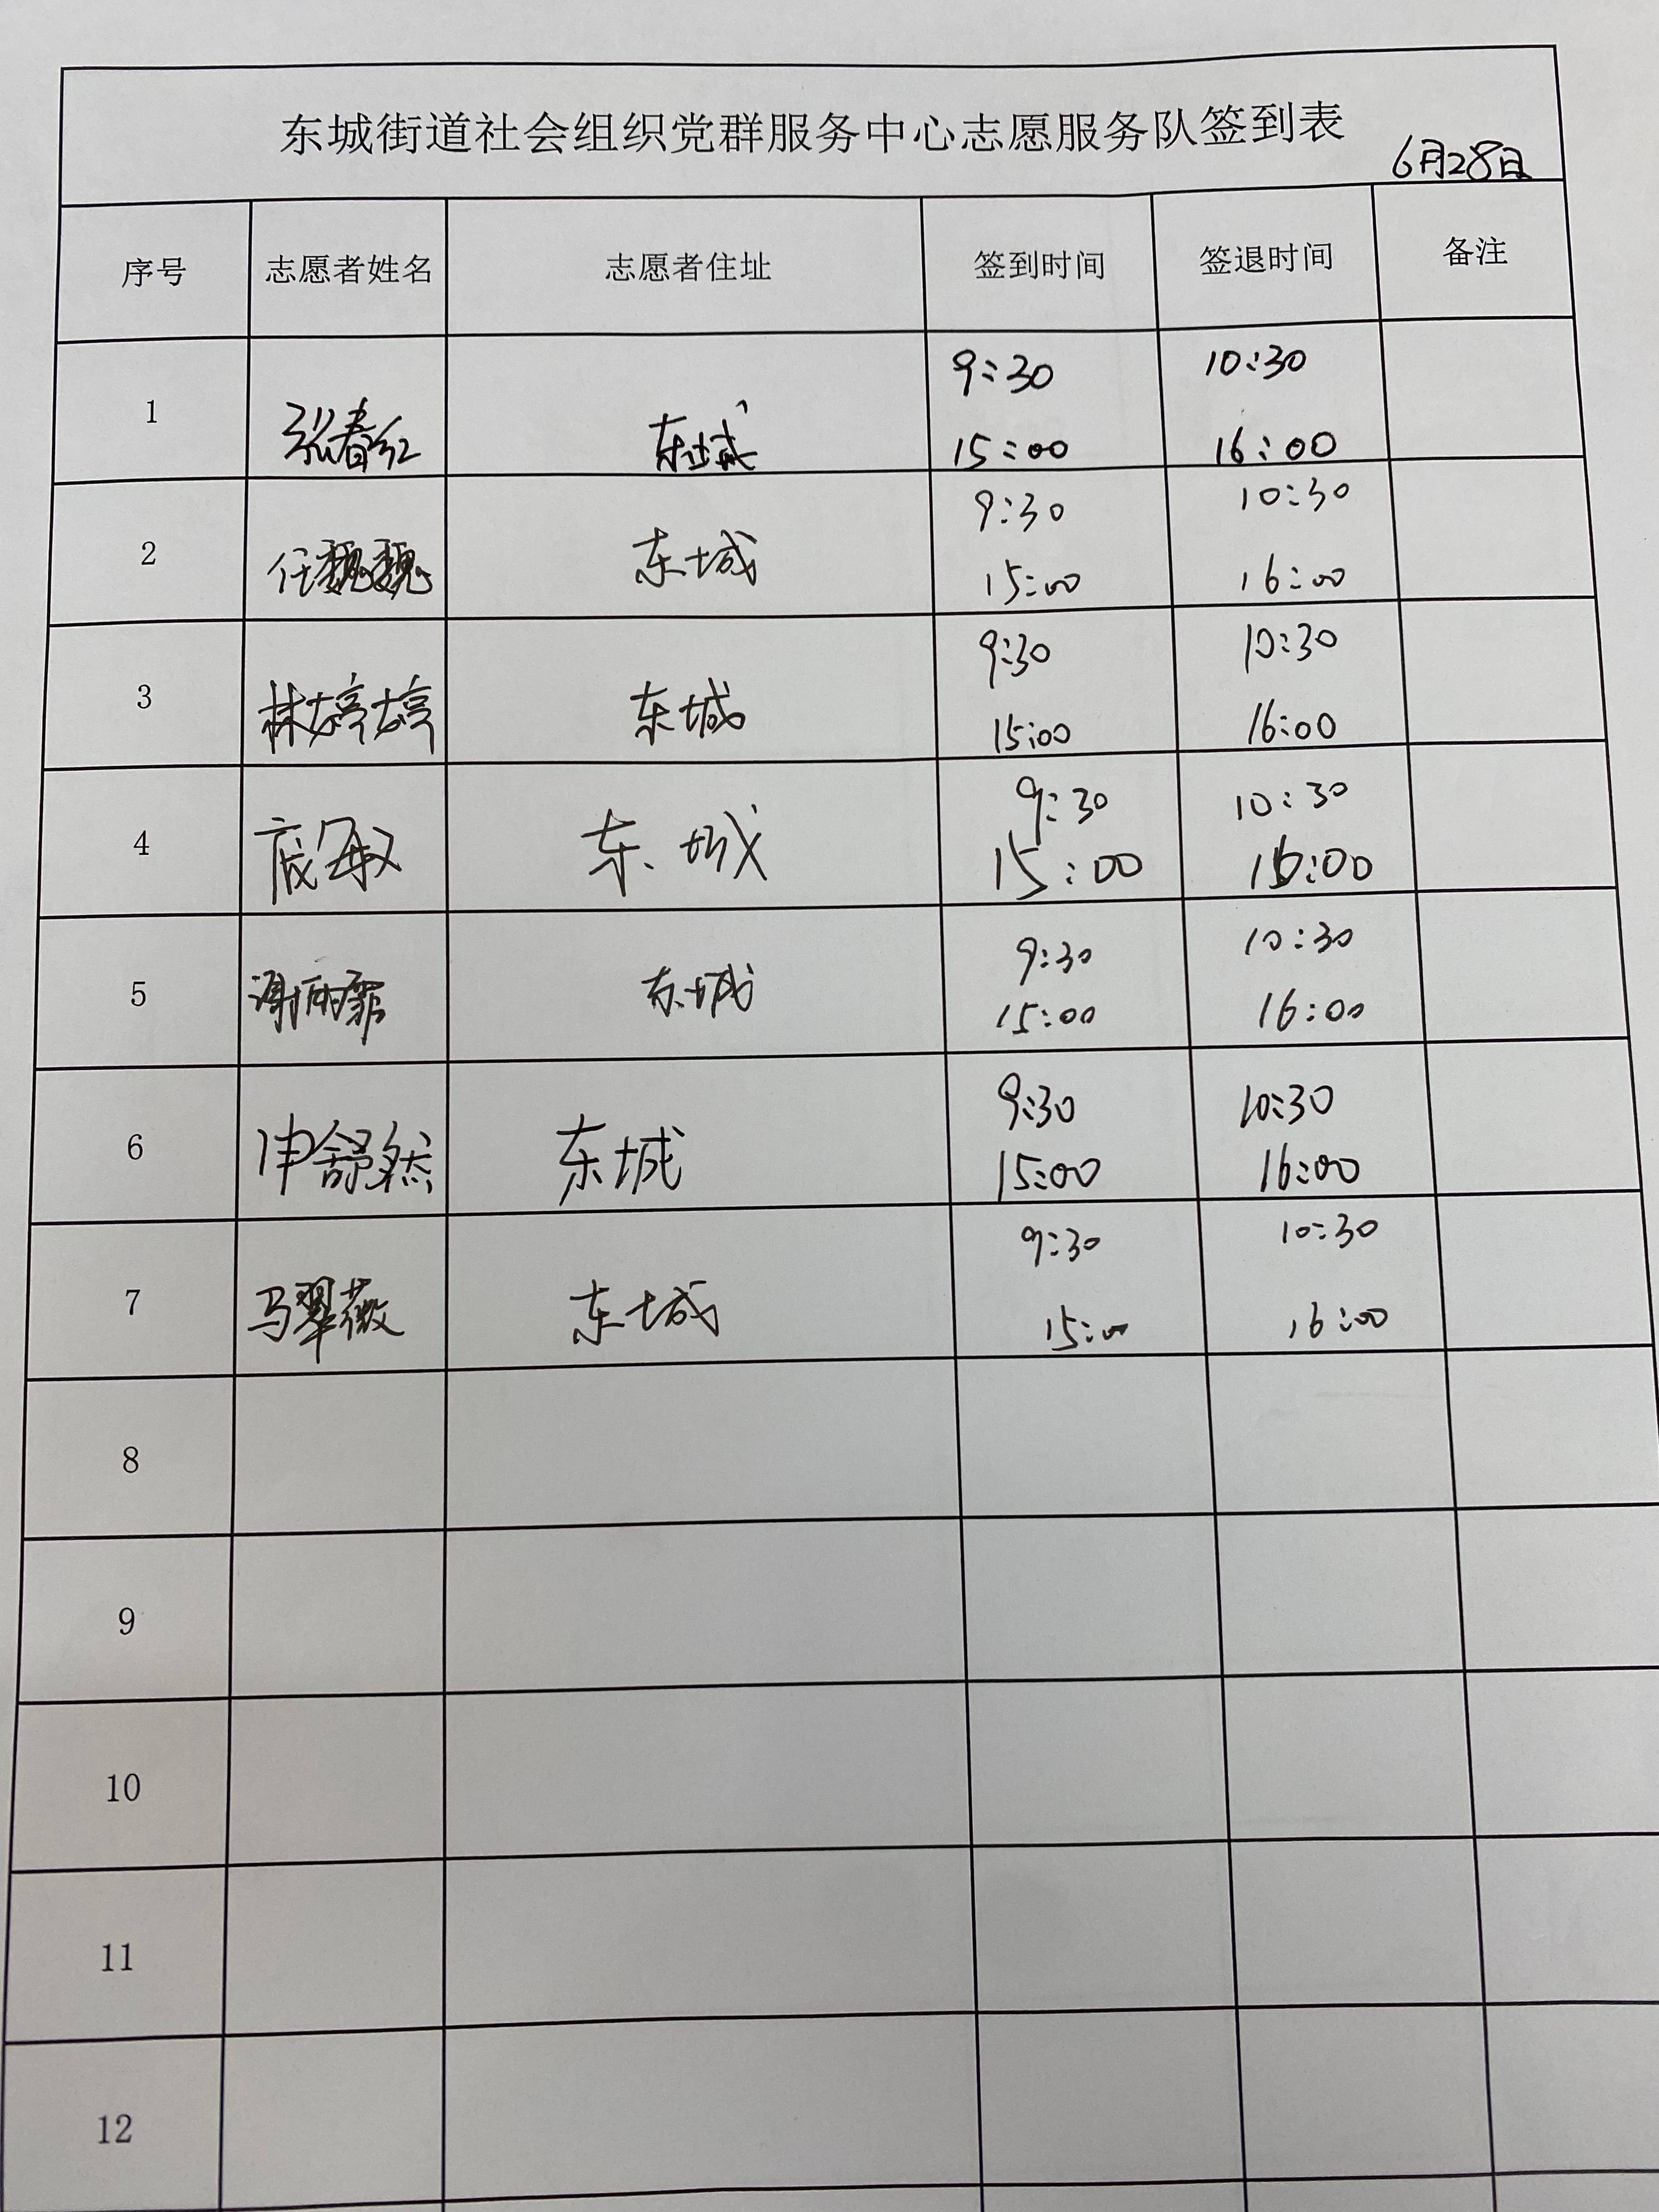 东城街道社会组织党群服务中心志愿服务队签到表
6月28日
序号 志愿者姓名 志愿者住址 签到时间 签退时间 备注
9:30 10:30
1 张春红 东城
15:00 16:00
9:30 10:30
2 任魏魏 东城
15:00 16:00
9:30 10:30
3 林婷婷 东城
15:00 16:00
9:30 10:30
4 东城
15:00 16:00
9:30 10:30
5 谢雨霏 东城
15:00 16:00
9:30 10:30
6 申舒然 东城
15:00 16:00
9:30 10:30
7 马翠薇 东城
15:00 16:00
8
9
10
11
12